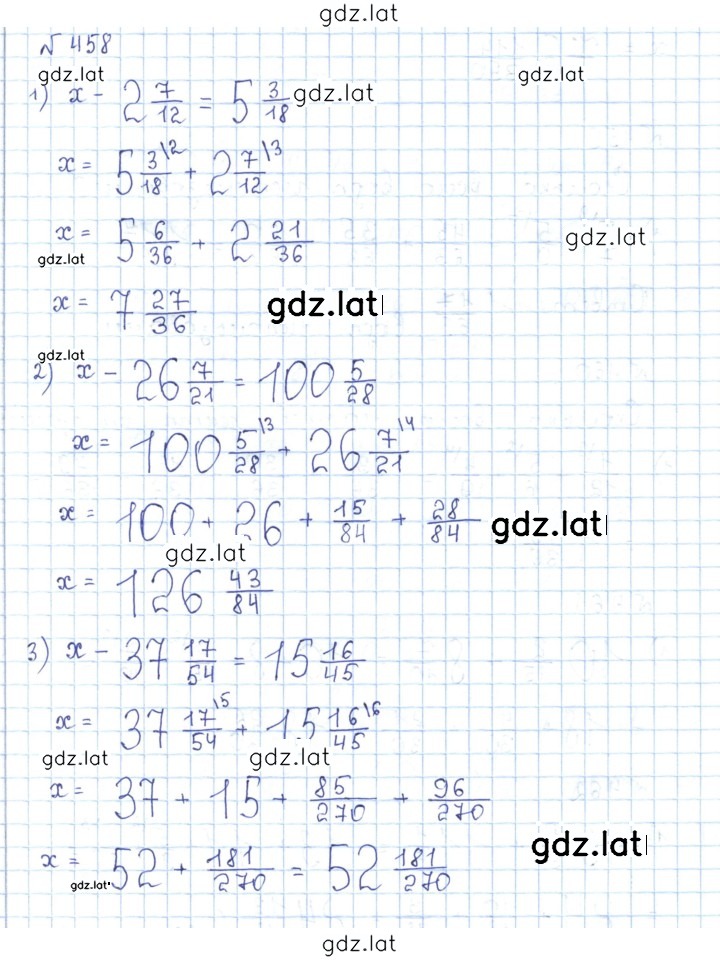 gdz.lat
№ 458
gdz.lat
1) x - 2 7/12 = 5 3/18 gdz.lat gdz.lat
x = 5 3\2/18 + 2 7\3/12
x = 5 6/36 + 2 21/36 gdz.lat
gdz.lat
x = 7 27/36 gdz.lat
gdz.lat
2) x - 26 7/21 = 100 5/28
x = 100 5\3/28 + 26 7\4/21
x = 100 + 26 + 15/84 + 28/84 gdz.lat
gdz.lat
x = 126 43/84
3) x - 37 17/54 = 15 16/45
x = 37 17\5/54 + 15 16\6/45
gdz.lat gdz.lat
x = 37 + 15 + 85/270 + 96/270
gdz.lat
x = 52 + 181/270 = 52 181/270
gdz.lat
gdz.lat